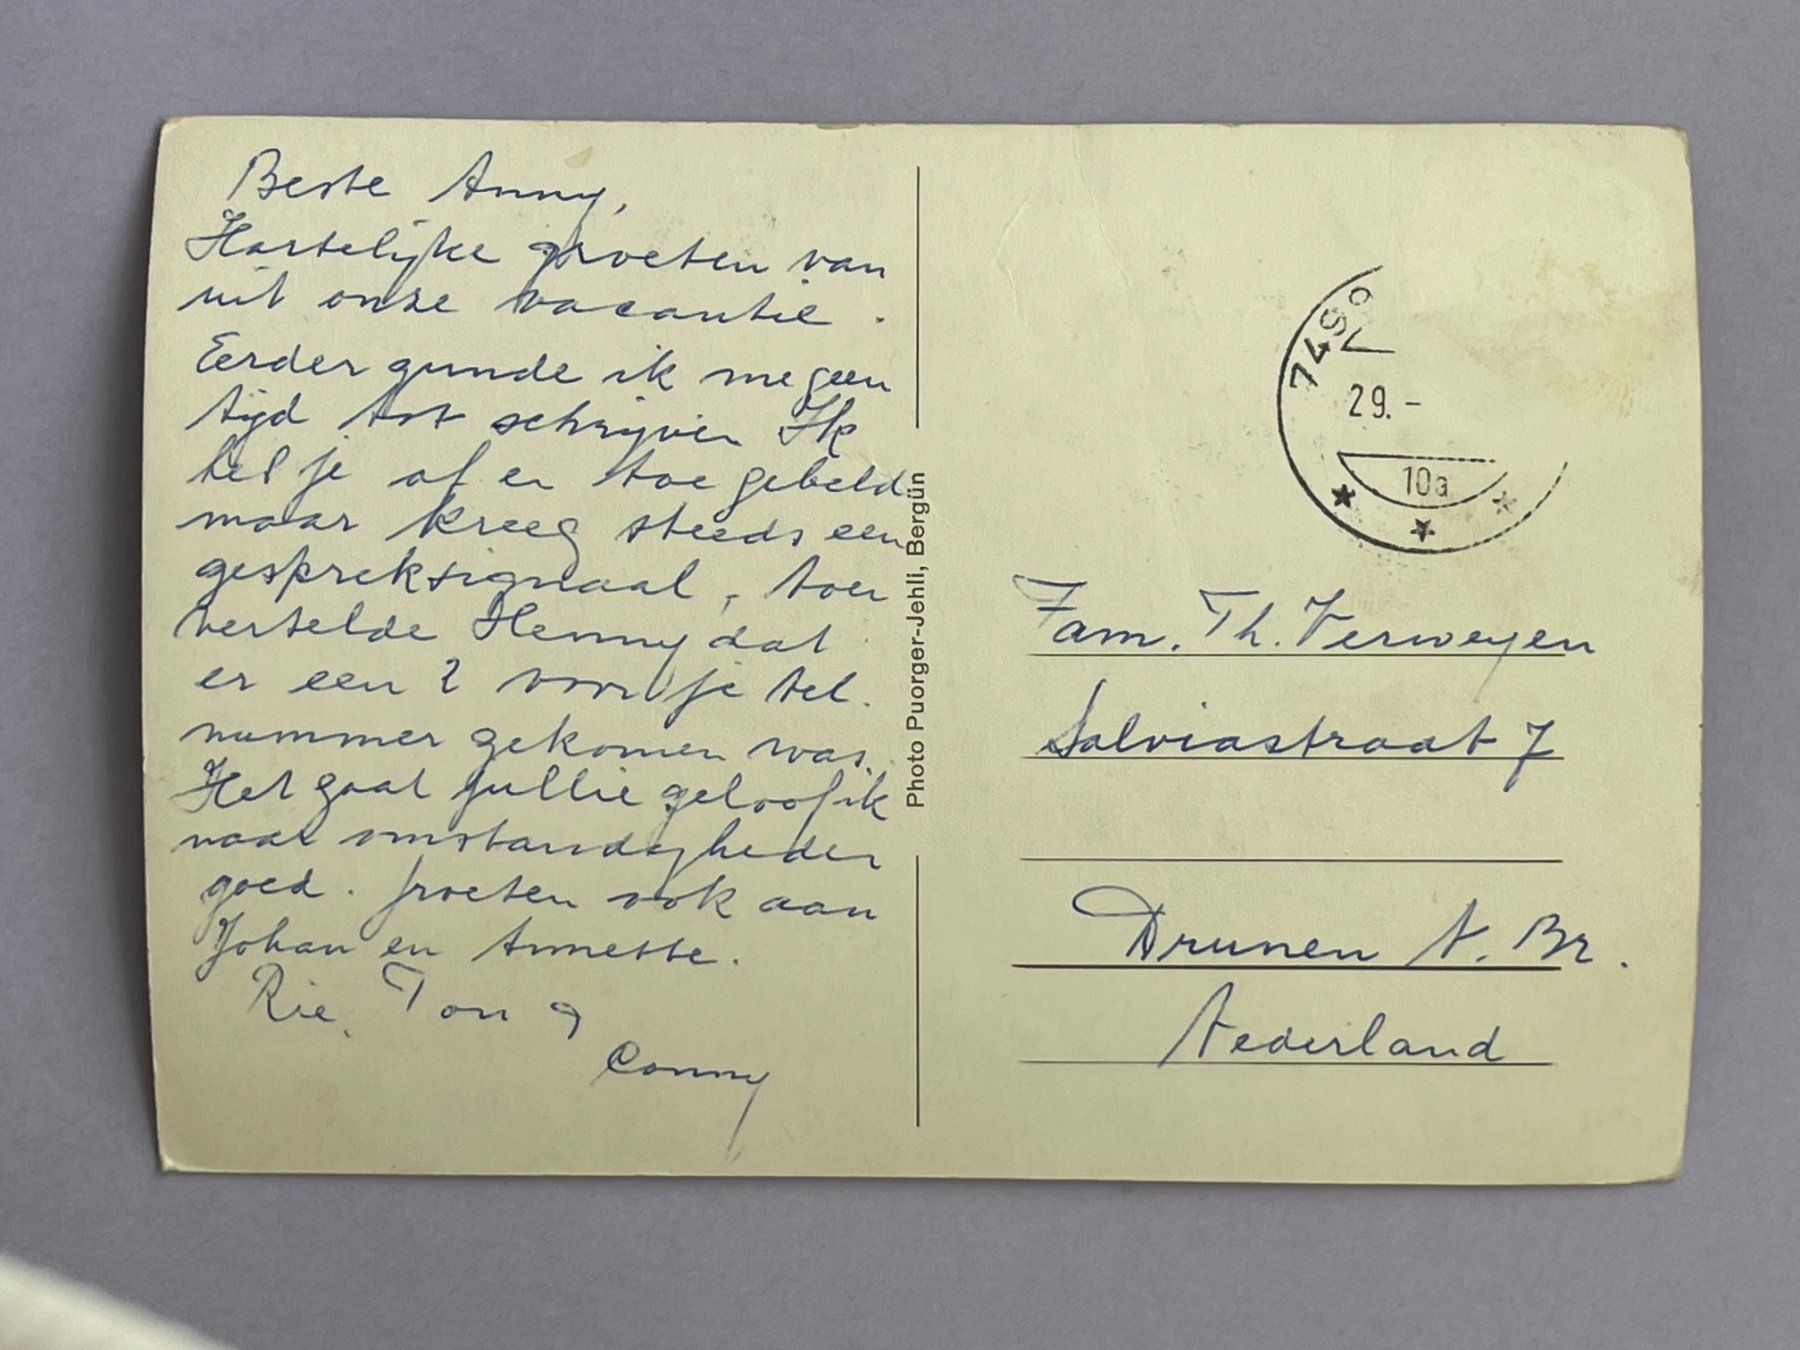 Beste Anny,
Hartelijke groeten van
uit onze vacantie.
Eerder gunde ik me geen
tijd tot schrijven Ik
heb je af en toe gebeld
maar kreeg steeds een
gespreksignaal, toen
vertelde Henny dat
er een 2 voor je tel.
nummer gekomen was.
Het gaat jullie geloof ik
naar omstandigheden
goed. Groeten ook aan
Johan en Annette.
Rie, Ton
Conny
Photo Puorger-Jehli, Bergün
29.-
10a
Fam. Th. Verweyen
Salviastraat 7
Drunen N. Br.
Nederland